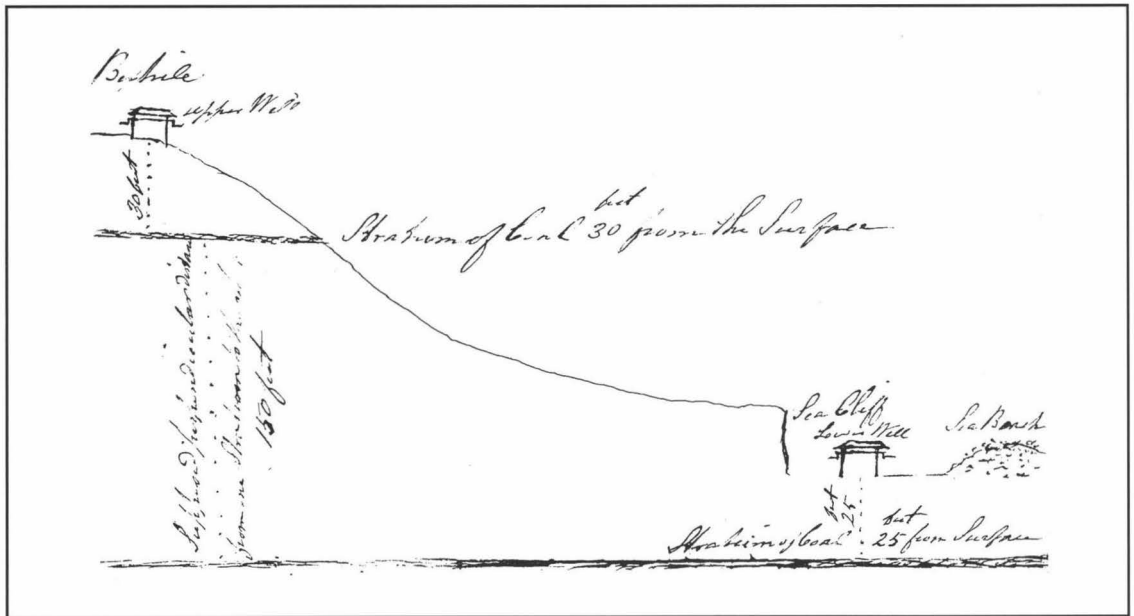 Bexhile
upper Well
30 feet
Stratum of Coal 30 feet from the Surface
Supposed perpendicular distance
from one Stratum to the
150 feet
Sea Cliff
Lower Well
Sea Beach
25 feet
Stratum of Coal 25 feet from Surface